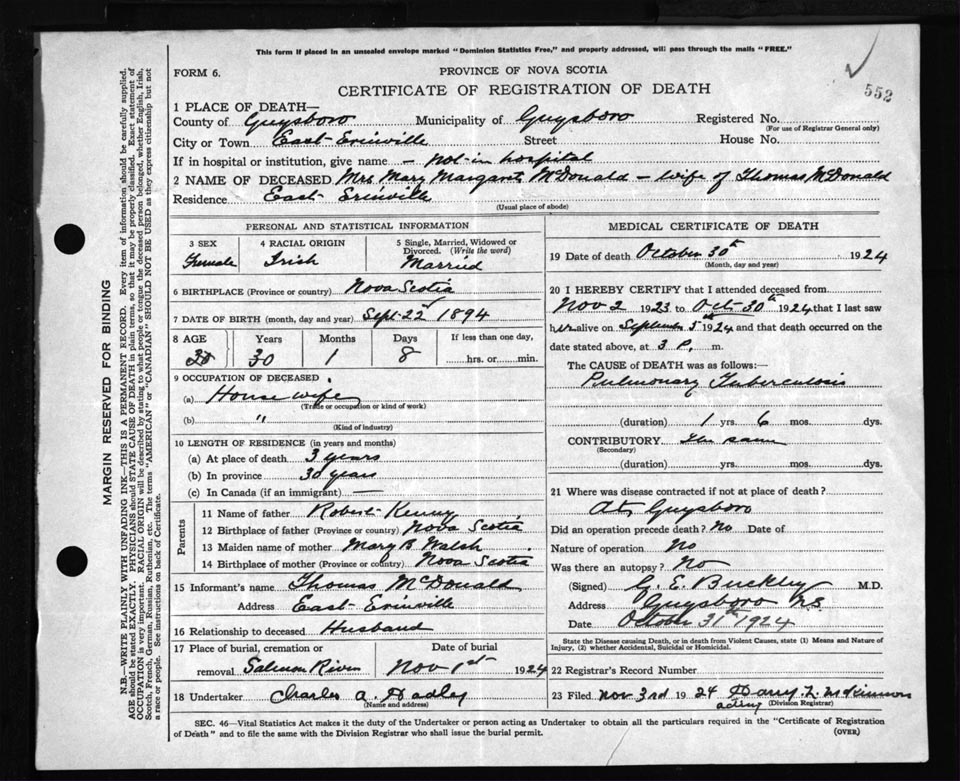 This form if placed in an unsealed envelope marked "Dominion Statistics Free," and properly addressed, will pass through the mails "FREE."
FORM 6.
PROVINCE OF NOVA SCOTIA
552
CERTIFICATE OF REGISTRATION OF DEATH
1 PLACE OF DEATH—
County of Guysboro Municipality of Guysboro Registered No.
(For use of Registrar General only)
City or Town East Erinville Street House No.
If in hospital or institution, give name – Not in hospital
2 NAME OF DECEASED Mrs Mary Margaret McDonald – wife of Thomas McDonald
Residence East Erinville
(Usual place of abode)
PERSONAL AND STATISTICAL INFORMATION
3 SEX 4 RACIAL ORIGIN 5 Single, Married, Widowed or Divorced. (Write the word)
Female Irish Married
6 BIRTHPLACE (Province or country) Nova Scotia
7 DATE OF BIRTH (month, day and year) Sept. 22 1894
8 AGE Years Months Days If less than one day,
30 1 8 hrs. or min.
9 OCCUPATION OF DECEASED
(a) House wife
(Trade or occupation or kind of work)
(b) "
(Kind of industry)
10 LENGTH OF RESIDENCE (in years and months)
(a) At place of death 3 years
(b) In province 30 years
(c) In Canada (if an immigrant) —
Parents
11 Name of father Robert Kenny
12 Birthplace of father (Province or country) Nova Scotia
13 Maiden name of mother Mary B Walsh
14 Birthplace of mother (Province or country) Nova Scotia
15 Informant's name Thomas McDonald
Address East Erinville
16 Relationship to deceased Husband
17 Place of burial, cremation or removal Date of burial
Salmon River Nov 1st 1924
18 Undertaker Charles A. Hadley
(Name and address)
MEDICAL CERTIFICATE OF DEATH
19 Date of death October 30th 1924
(Month, day and year)
20 I HEREBY CERTIFY that I attended deceased from
Nov 2 1923 to Oct 30th 1924 that I last saw
her alive on September 5th 1924 and that death occurred on the
date stated above, at 3 P. m.
The CAUSE OF DEATH was as follows:—
Pulmonary Tuberculosis
(duration) 1 yrs. 6 mos. dys.
CONTRIBUTORY The same
(Secondary)
(duration) yrs. mos. dys.
21 Where was disease contracted if not at place of death?
At Guysboro
Did an operation precede death? No Date of
Nature of operation No
Was there an autopsy? No
(Signed) G. E. Buckley M.D.
Address Guysboro N.S.
Date October 31st 1924
State the Disease causing Death, or in death from Violent Causes, state (1) Means and Nature of Injury, (2) whether Accidental, Suicidal or Homicidal.
22 Registrar's Record Number
23 Filed Nov 3rd 1924 Harry L. McKinnon
acting (Division Registrar)
SEC. 46—Vital Statistics Act makes it the duty of the Undertaker or person acting as Undertaker to obtain all the particulars required in the "Certificate of Registration
of Death" and to file the same with the Division Registrar who shall issue the burial permit.
(OVER)
MARGIN RESERVED FOR BINDING
N.B.—WRITE PLAINLY WITH UNFADING INK—THIS IS A PERMANENT RECORD. Every item of information should be carefully supplied.
AGE should be stated EXACTLY. PHYSICIANS should STATE CAUSE OF DEATH in plain terms, so that it may be properly classified. Exact statement of
OCCUPATION is very important. RACIAL ORIGIN will be described by stating to what people or tongue the deceased person belonged, whether English, Irish,
Scotch, French, German, Russian, Ruthenian, etc. The terms "AMERICAN" or "CANADIAN" SHOULD NOT BE USED as they express citizenship but not
a race or people. See instructions on back of Certificate.